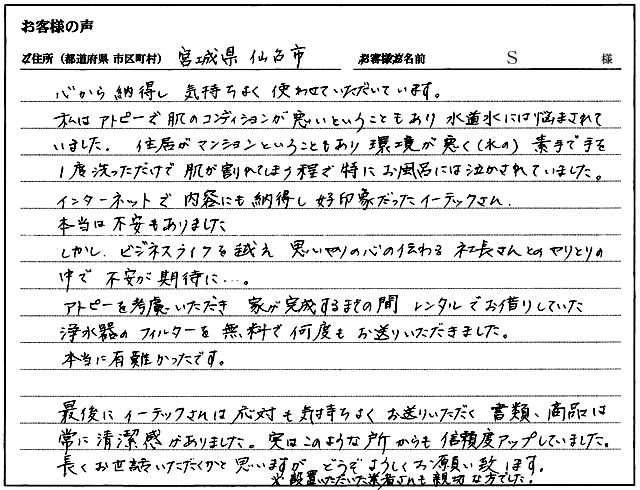 お客様の声
ご住所（都道府県 市区町村） 宮城県 仙台市 お客様お名前 S 様
心から納得し 気持ちよく 使わせていただいています。
私はアトピーで肌のコンディションが悪いということもあり 水道水には悩まされて
いました。 住居がマンションということもあり 環境が悪く（水の） 素手で手を
1度洗っただけで肌が割れてしまう程で特にお風呂には泣かされていました。
インターネットで 内容にも納得し好印象だったイーテックさん.
本当は不安もありました
しかし、ビジネスライクを越え 思いやりの心の伝わる 社長さんとのやりとりの
中で 不安が期待に…。
アトピーを考慮いただき 家が完成するまでの間 レンタルでお借りしていた
浄水器のフィルターを無料で何度もお送りいただきました。
本当に有難かったです。
最後にイーテックさんは応対も気持ちよくお送りいただく 書類、商品は
常に清潔感がありました。実はこのような所からも信頼度アップしていました。
長くお世話いただくかと思いますが どうぞよろしくお願い致します。
※設置いただいた業者さんも親切な方でした。